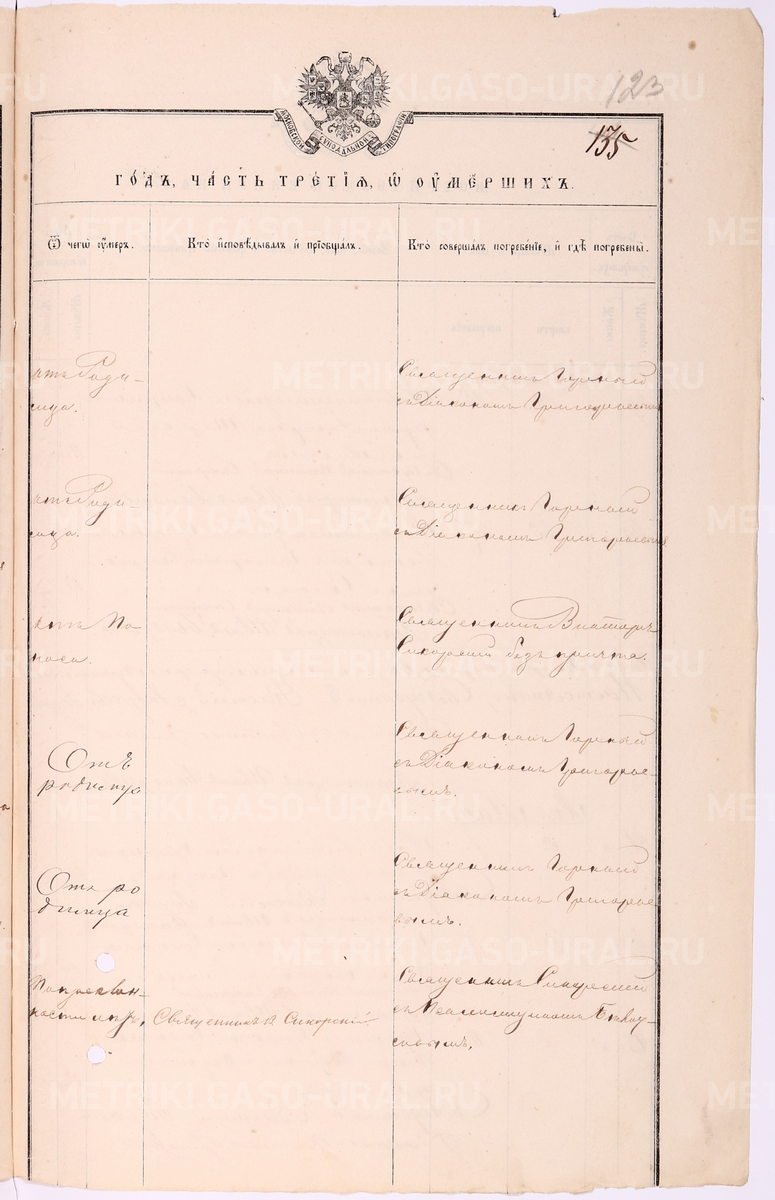 123
135
МОСКОВСКОЙ СѴНОДАЛЬНОЙ ТИПОГРАФІИ
ГО́ДЪ, ЧА́СТЬ ТРЕ́ТІѦ, Ѡ҆ ОУ҆МЕ́РШИХЪ.
Ѿ чегѡ̀ ᲂу҆́меръ.
Кто̀ и҆сповѣ́дывалъ и҆ пріѡбща́лъ.
Кто̀ соверша́лъ погребе́нїе, и҆ гдѣ̀ погребены̀.
отъ Роди-
мца.
Священникъ Горный
съ Діакономъ Григорьевымъ
отъ Роди-
мца.
Священникъ Горный
съ Діакономъ Григорьевымъ
отъ По-
носа.
Священникъ Викторъ
Сикорскій безъ причта.
Отъ
родимца
Священникъ Горный
съ Діакономъ Григорье-
вымъ.
Отъ ро
димца
Священникъ Горный
съ Діакономъ Григорье-
вымъ.
Священникъ В Сикорскій
Священникъ Сикорскій
съ Псаломщикомъ
METRIKI.GASO-URAL.RU